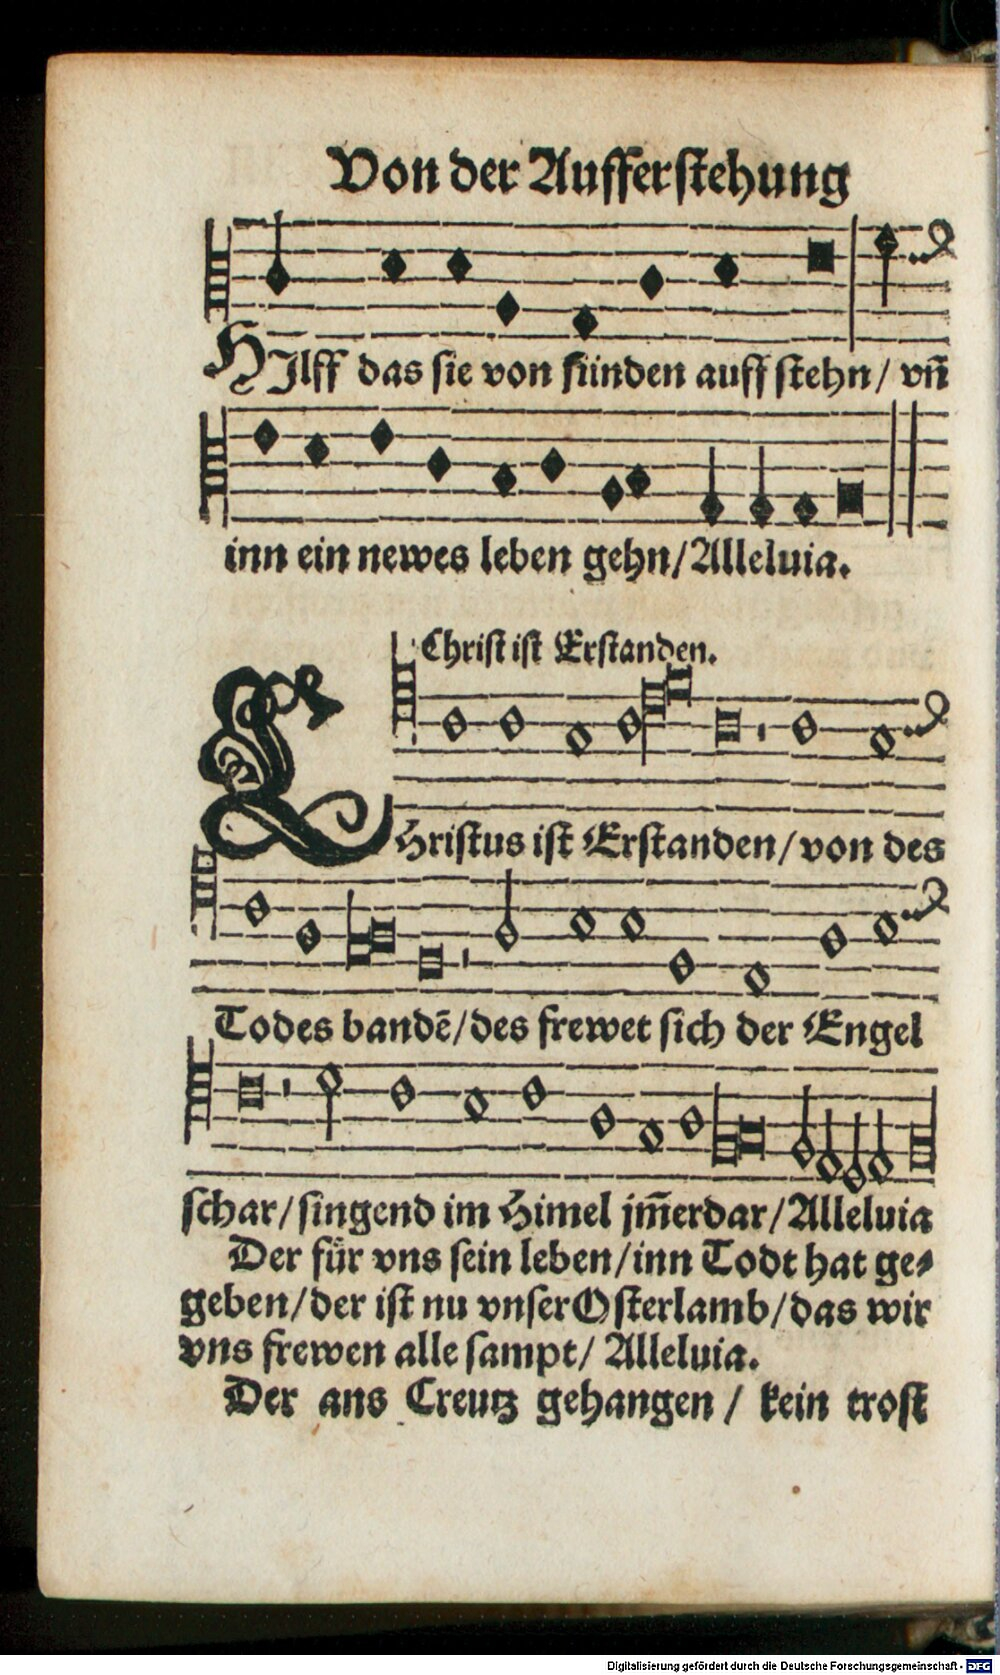 Von der Aufferstehung
HIlff das sie von sünden auff stehn/ vñ
inn ein newes leben gehn/Alleluia.
Christ ist Erstanden.
CHristus ist Erstanden/von des
Todes bandẽ/des frewet sich der Engel
schar/singend im Himel jm̃erdar/Alleluia
Der für vns sein leben/inn Todt hat ge⸗
geben/der ist nu vnser Osterlamb/das wir
vns frewen alle sampt/ Alleluia.
Der ans Creutz gehangen / kein trost
Digitalisierung gefördert durch die Deutsche Forschungsgemeinschaft - DFG